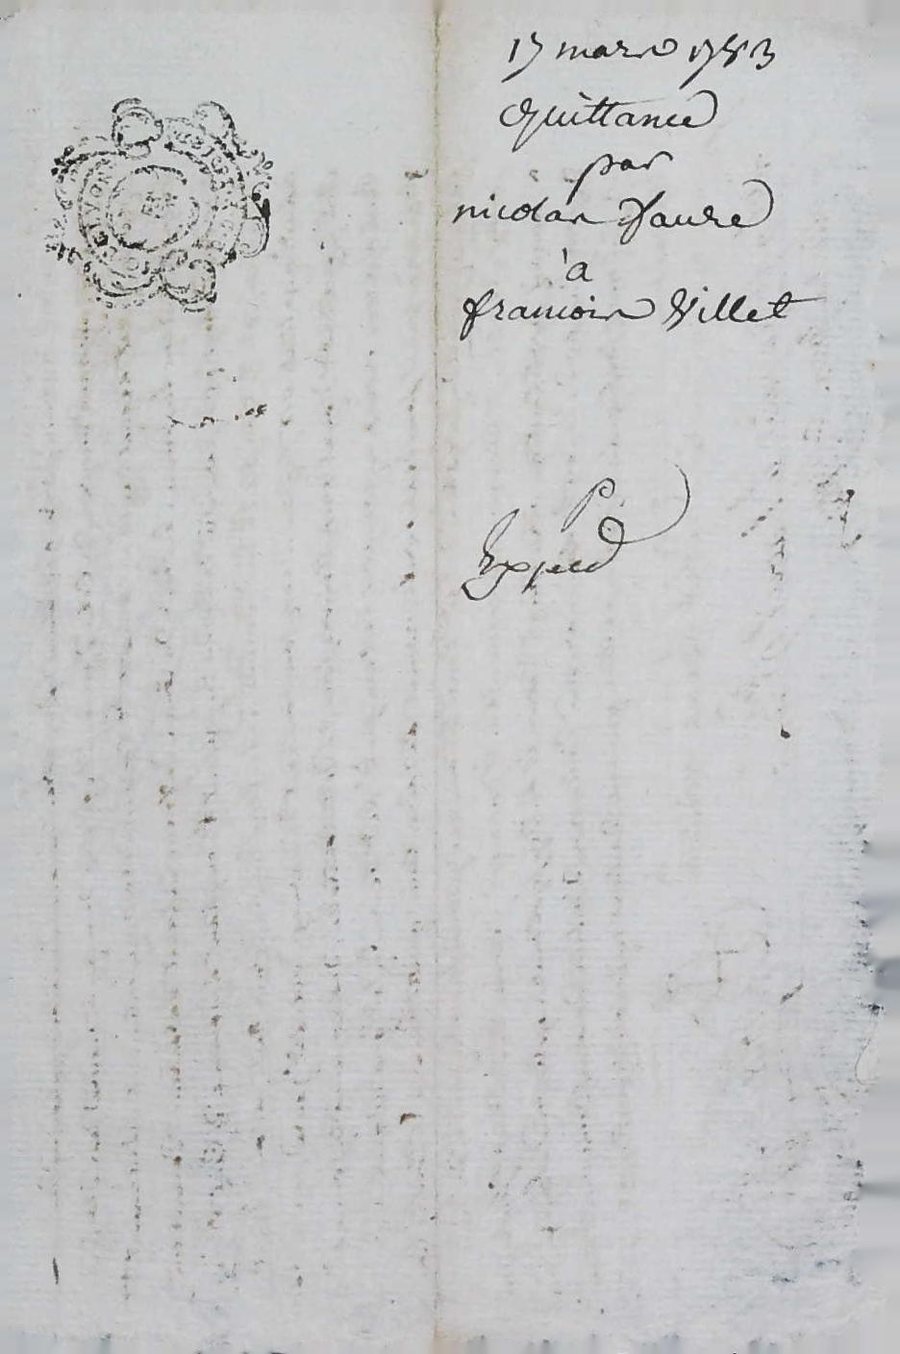 17 mars 1783
Quittance
par
nicolas faure
à
francois Villet
P
Exped